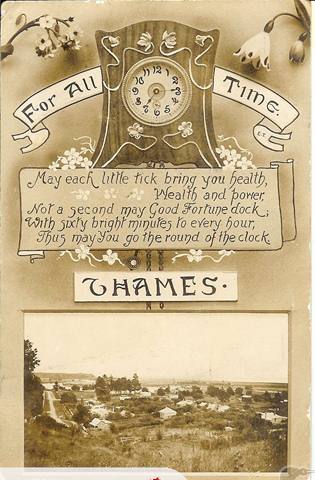 For All Time.
E.T.
May each little tick bring you health,
Wealth and power,
Not a second may Good Fortune dock;
With sixty bright minutes to every hour,
Thus may you go the round of the clock.
THAMES.